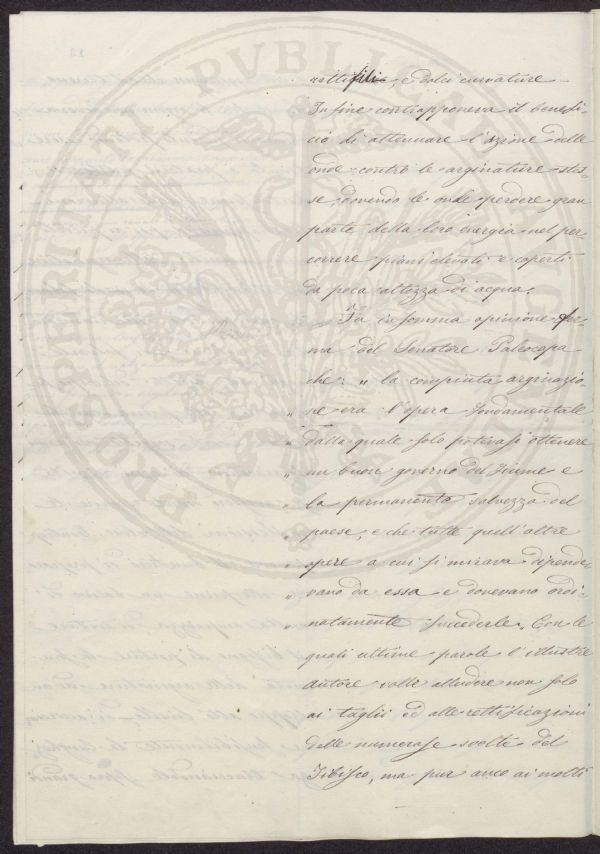 rettifili, e dolci curvature –
In fine contrapponeva il benefi-
cio di attenuare l'azione delle
onde contro le arginature stes-
se, dovendo le onde perdere gran
parte della loro energia nel per-
correre piani elevati e coperti
da poca altezza di acqua.
Fu in somma opinione fer-
ma del Senatore Paleocapa
che: „ la compiuta arginazio
„ ne era l'opera fondamentale
„ dalla quale solo potevasi ottenere
„ un buon governo del fiume e
„ la permanente salvezza del
„ paese, e che tutte quell'altre
„ opere a cui si mirava dipende-
„ vano da essa e dovevano ordi-
„ natamente succederle„. Con le
quali ultime parole l'illustre
autore volle alludere non solo
ai taglii ed alle rettificazioni
delle numerose svolte del
Tibisco, ma pur anco ai molti
PROSPERITATI PVBLICAE